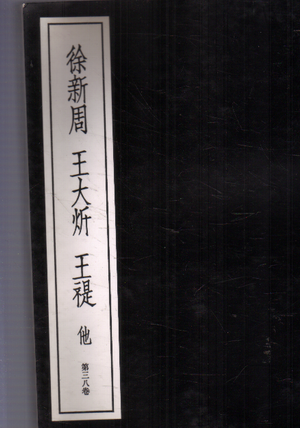 徐新周 王大炘 王禔 他 第三八巻